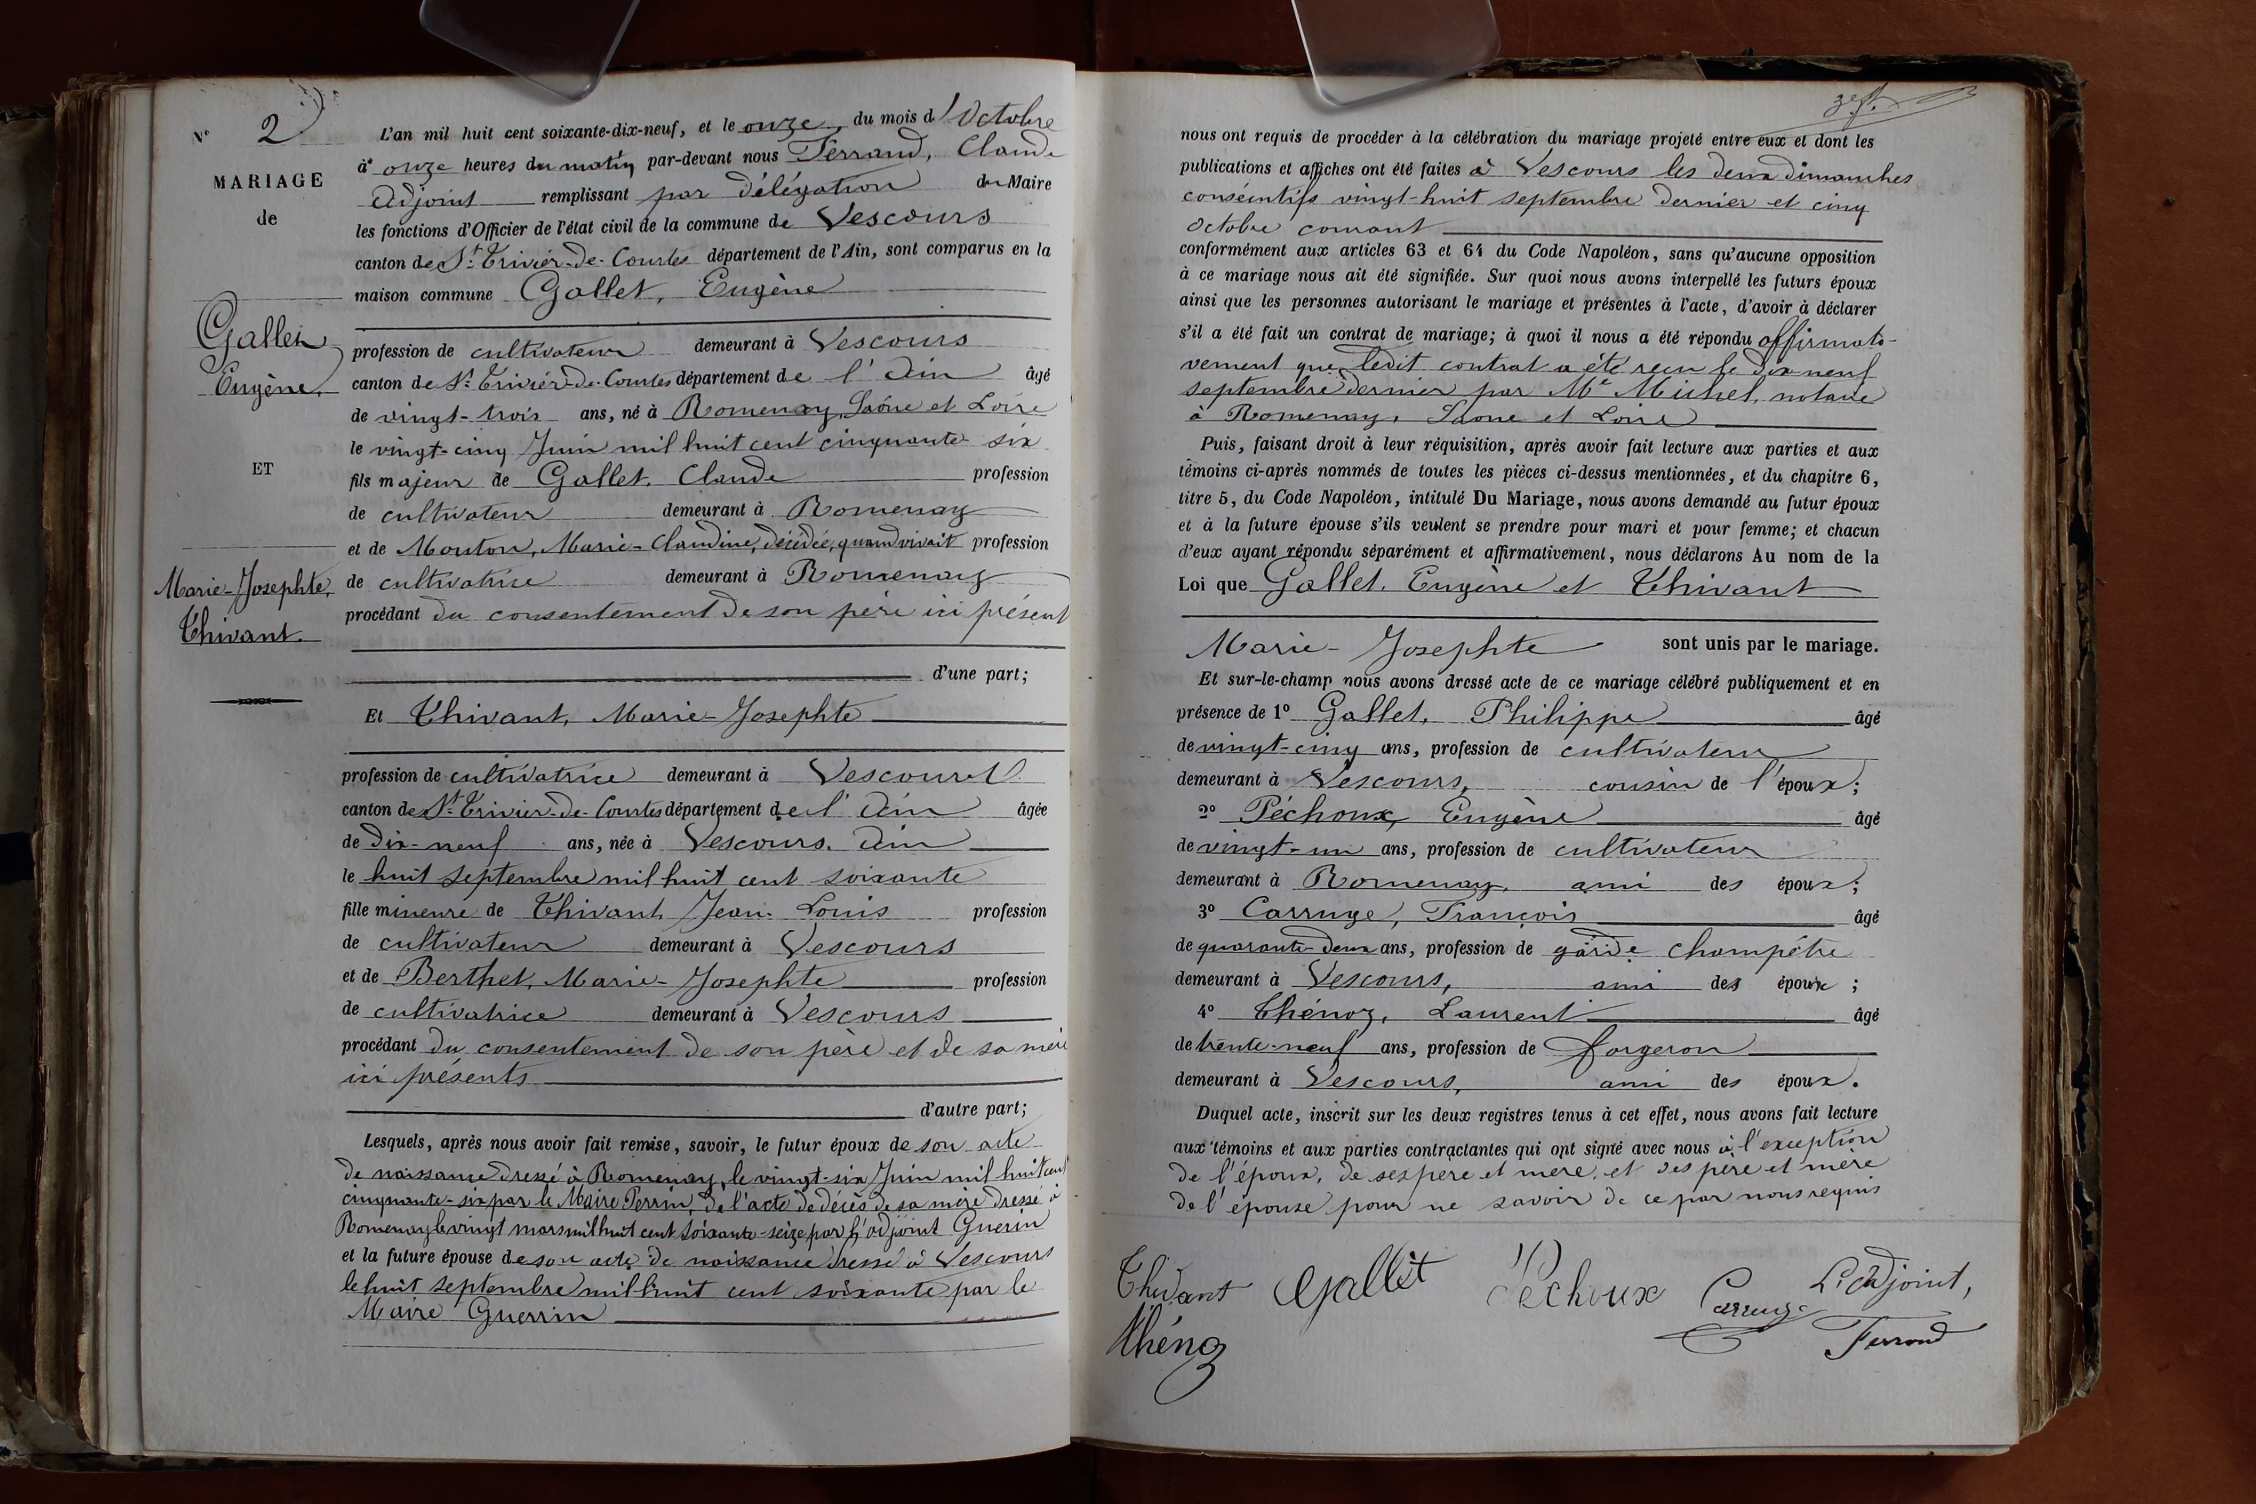 N° 2
MARIAGE
de
Gallet
Eugène.
ET
Marie-Josephte,
Thivant.
L'an mil huit cent soixante-dix-neuf, et le onze, du mois d'Octobre
à onze heures du matin par-devant nous Ferrand, Claude
Adjoint remplissant par délégation du Maire
les fonctions d'Officier de l'état civil de la commune de Vescours
canton de St. Trivier-de-Courtes département de l'Ain, sont comparus en la
maison commune Gallet, Eugène
profession de cultivateur demeurant à Vescours
canton de St. Trivier-de-Courtes département de l'Ain âgé
de vingt-trois ans, né à Romenay, Saône et Loire
le vingt-cinq Juin mil huit cent cinquante-six
fils majeur de Gallet, Claude profession
de cultivateur demeurant à Romenay
et de Mouton, Marie-Claudine, décédée, quand vivait profession
de cultivatrice demeurant à Romenay
procédant du consentement de son père ici présent
d'une part;
Et Thivant, Marie-Josephte
profession de cultivatrice demeurant à Vescours
canton de St. Trivier-de-Courtes département de l'Ain âgée
de dix-neuf ans, née à Vescours. Ain
le huit septembre mil huit cent soixante
fille mineure de Thivant, Jean-Louis profession
de cultivateur demeurant à Vescours
et de Berthet, Marie-Josephte profession
de cultivatrice demeurant à Vescours
procédant du consentement de son père et de sa mère
ici présents
d'autre part;
Lesquels, après nous avoir fait remise, savoir, le futur époux de son acte
de naissance dressé à Romenay, le vingt-six Juin mil huit cent
cinquante-six par le Maire Perrin, de l'acte de décès de sa mère dressé à
Romenay le vingt mars mil huit cent soixante-seize par l'adjoint Guerin
et la future épouse de son acte de naissance dressé à Vescours
le huit septembre mil huit cent soixante par le
Maire Guerrin
nous ont requis de procéder à la célébration du mariage projeté entre eux et dont les
publications et affiches ont été faites à Vescours les deux dimanches
consécutifs vingt-huit septembre dernier et cinq
octobre courant
conformément aux articles 63 et 64 du Code Napoléon, sans qu'aucune opposition
à ce mariage nous ait été signifiée. Sur quoi nous avons interpellé les futurs époux
ainsi que les personnes autorisant le mariage et présentes à l'acte, d'avoir à déclarer
s'il a été fait un contrat de mariage; à quoi il nous a été répondu affirmati-
vement que ledit contrat a été reçu le dix neuf
septembre dernier par Me Michel, notaire
à Romenay, Saone et Loire
Puis, faisant droit à leur réquisition, après avoir fait lecture aux parties et aux
témoins ci-après nommés de toutes les pièces ci-dessus mentionnées, et du chapitre 6,
titre 5, du Code Napoléon, intitulé Du Mariage, nous avons demandé au futur époux
et à la future épouse s'ils veulent se prendre pour mari et pour femme; et chacun
d'eux ayant répondu séparément et affirmativement, nous déclarons Au nom de la
Loi que Gallet, Eugène et Thivant
Marie-Josephte sont unis par le mariage.
Et sur-le-champ nous avons dressé acte de ce mariage célébré publiquement et en
présence de 1° Gallet, Philippe âgé
de vingt-cinq ans, profession de cultivateur
demeurant à Vescours, cousin de l'époux;
2° Péchoux, Eugène âgé
de vingt-un ans, profession de cultivateur
demeurant à Romenay. ami des époux;
3° Carruge, François âgé
de quarante-deux ans, profession de garde champêtre
demeurant à Vescours, ami des époux;
4° Thénoz, Laurent âgé
de trente-neuf ans, profession de forgeron
demeurant à Vescours, ami des époux.
Duquel acte, inscrit sur les deux registres tenus à cet effet, nous avons fait lecture
aux témoins et aux parties contractantes qui ont signé avec nous à l'exception
de l'époux, de ses père et mère, et des père et mère
de l'épouse pour ne savoir de ce par nous requis
Thivant Gallet Péchoux Carruge L'adjoint,
Thénoz Ferrand